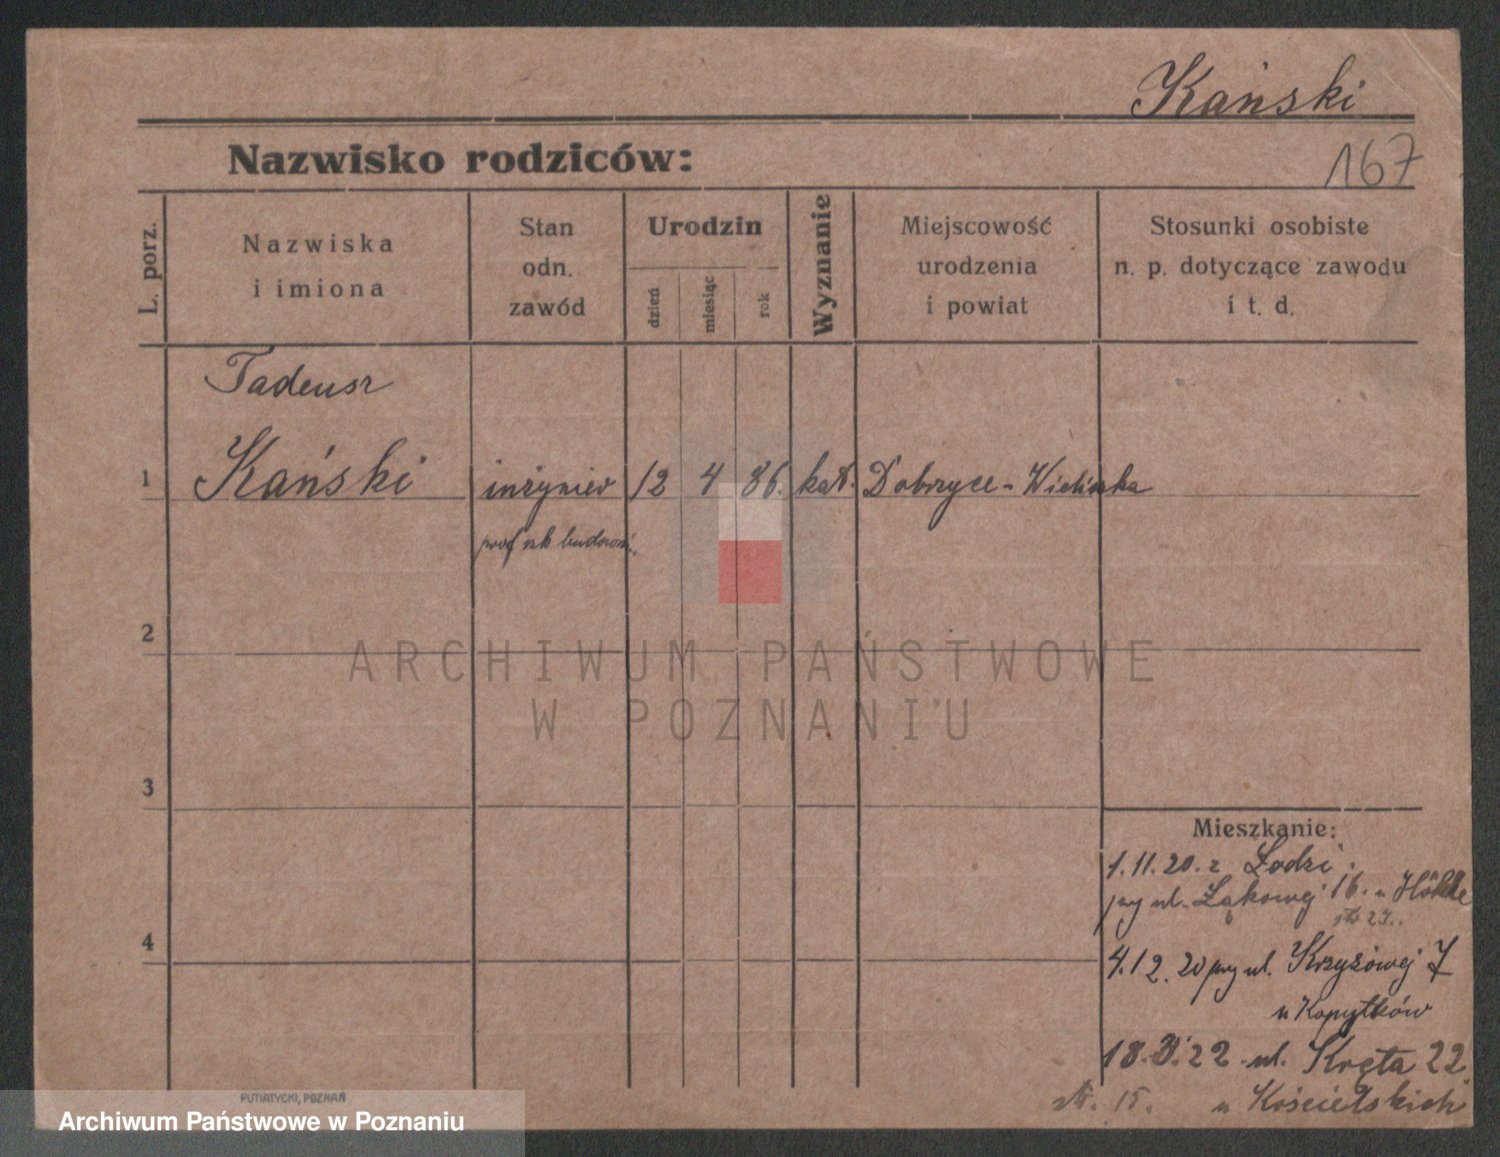 Kański
167
Nazwisko rodziców:
L. porz.
Nazwiska
i imiona
Stan
odn.
zawód
Urodzin
dzień
miesiąc
rok
Wyznanie
Miejscowość
urodzenia
i powiat
Stosunki osobiste
n. p. dotyczące zawodu
i t. d.
Tadeusz
1 Kański inżynier 12 4 86. kat. Dobrzyce - Wieliczka
prof szk budown.
2
ARCHIWUM PAŃSTWOWE
W POZNANIU
3
Mieszkanie:
1.11.20. z Łodzi
przy ul. Łąkowej 16. u
4
4.12.20 przy ul. Krzyżowej 7
u Kopytków
18.3.22 ul. Kręta 22
15. u Kościelskich
PUTIATYCKI, POZNAŃ
Archiwum Państwowe w Poznaniu